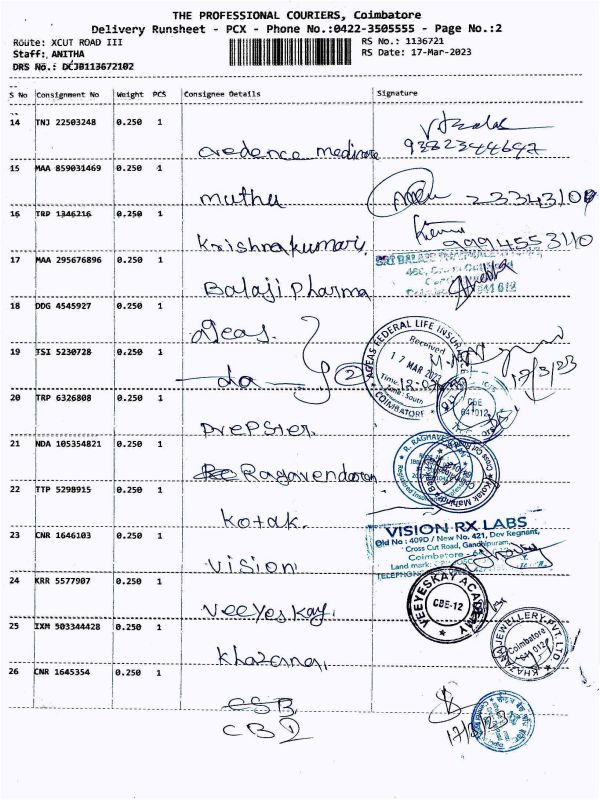 THE PROFESSIONAL COURIERS, Coimbatore
Delivery Runsheet - PCX - Phone No.:0422-3505555 - Page No.:2
Route: XCUT ROAD III
RS No.: 1136721
Staff: ANITHA
RS Date: 17-Mar-2023
DRS No.: DCJB113672102
S No Consignment No Weight PCS Consignee Details Signature
14 TNJ 22503248 0.250 1
credence medicare 9382344647
15 MAA 859031469 0.250 1
muthu
16 TRP 1346216 0.250 1
Krishnakumari 9994553110
17 MAA 295676896 0.250 1
SRI BALAJI
Balaji Pharma 641 012
18 DDG 4545927 0.250 1
Ageas.
AGEAS FEDERAL LIFE INSUR
Received
17 MAR 2023
COIMBATORE
19 TSI 5230728 0.250 1
do 2 17/3/23
CBE
641 012
20 TRP 6326808 0.250 1
prepster
21 NDA 105354821 0.250 1
R. RAGHAVEN
Ragavendaran
Kotak Mahindra Ba
22 TTP 5298915 0.250 1
Kotak.
VISION RX LABS
Old No : 409D / New No. 421, Dev Regnants,
Cross Cut Road, Gandhipuram,
Coimbatore
Land mark:
TELEPHONE
23 CNR 1646103 0.250 1
Vision
24 KRR 5577907 0.250 1
VEEYESKAY ACADEMY
CBE-12
Veeyeskay.
25 IXM 503344428 0.250 1
KHAZANA JEWELLERY PVT. LTD
Coimbatore
641 012
Khazana.
26 CNR 1645354 0.250 1
CSB
CBD
17/3/23